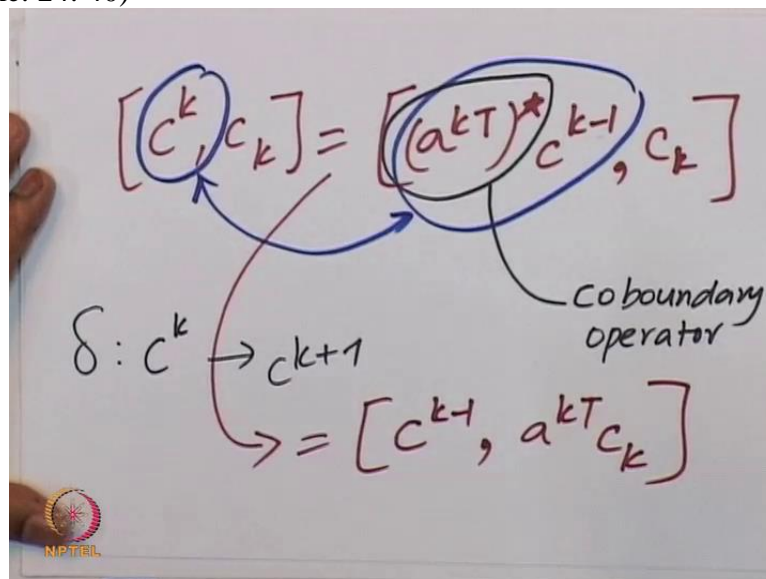 [c^k, c_k] = [(a^{kT})^* c^{k-1}, c_k]
coboundary
operator
δ : c^k → c^{k+1}
⟶ = [c^{k-1}, a^{kT} c_k]
NPTEL